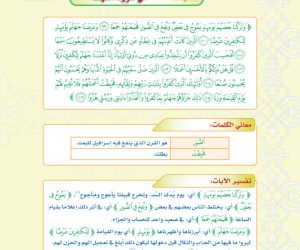 وَتَرَكْنَا بَعْضَهُمْ يَوْمَئِذٍ يَمُوجُ فِي بَعْضٍ وَنُفِخَ فِي الصُّورِ فَجَمَعْنَاهُمْ جَمْعًا (٩٩) وَعَرَضْنَا جَهَنَّمَ يَوْمَئِذٍ
لِّلْكَافِرِينَ عَرْضًا (١٠٠) الَّذِينَ كَانَتْ أَعْيُنُهُمْ فِي غِطَاءٍ عَن ذِكْرِي وَكَانُوا لَا يَسْتَطِيعُونَ سَمْعًا
(١٠١) أَفَحَسِبَ الَّذِينَ كَفَرُوا أَن يَتَّخِذُوا عِبَادِي مِن دُونِي أَوْلِيَاءَ إِنَّا أَعْتَدْنَا جَهَنَّمَ لِلْكَافِرِينَ نُزُلًا
(١٠٢) قُلْ هَلْ نُنَبِّئُكُم بِالْأَخْسَرِينَ أَعْمَالًا (١٠٣) الَّذِينَ ضَلَّ سَعْيُهُمْ فِي الْحَيَاةِ الدُّنْيَا وَهُمْ يَحْسَبُونَ أَنَّهُمْ
يُحْسِنُونَ صُنْعًا (١٠٤) أُولَئِكَ الَّذِينَ كَفَرُوا بِآيَاتِ رَبِّهِمْ وَلِقَائِهِ فَحَبِطَتْ أَعْمَالُهُمْ فَلَا نُقِيمُ لَهُمْ
يَوْمَ الْقِيَامَةِ وَزْنًا (١٠٥) ذَلِكَ جَزَاؤُهُمْ جَهَنَّمُ بِمَا كَفَرُوا وَاتَّخَذُوا آيَاتِي وَرُسُلِي هُزُوًا (١٠٦)
معاني الكلمات:
الصُّورِ هو القرن الذي ينفخ فيه إسرافيل للبعث.
فَحَبِطَتْ بطلت.
تفسير الآيات:
وَتَرَكْنَا بَعْضَهُمْ يَوْمَئِذٍ أي: يوم يُدك السد، وتخرج قبيلتا يأجوج ومأجوج، يَمُوجُ فِي
بَعْضٍ أي: يختلط الناس بعضهم في بعض وَنُفِخَ فِي الصُّورِ أي: في أثر ذلك إعلاما بقيام
الساعة فَجَمَعْنَاهُمْ جَمْعًا أي: في صعيد واحد للحساب والجزاء.
وَعَرَضْنَا جَهَنَّمَ أي: أبرزناها وأظهرناها يَوْمَئِذٍ أي يوم القيامة لِّلْكَافِرِينَ عَرْضًا
ليروا ما فيها من العذاب والنكال قبل دخولها ليكون ذلك أبلغ في تعجيل الهم والحزن لهم.